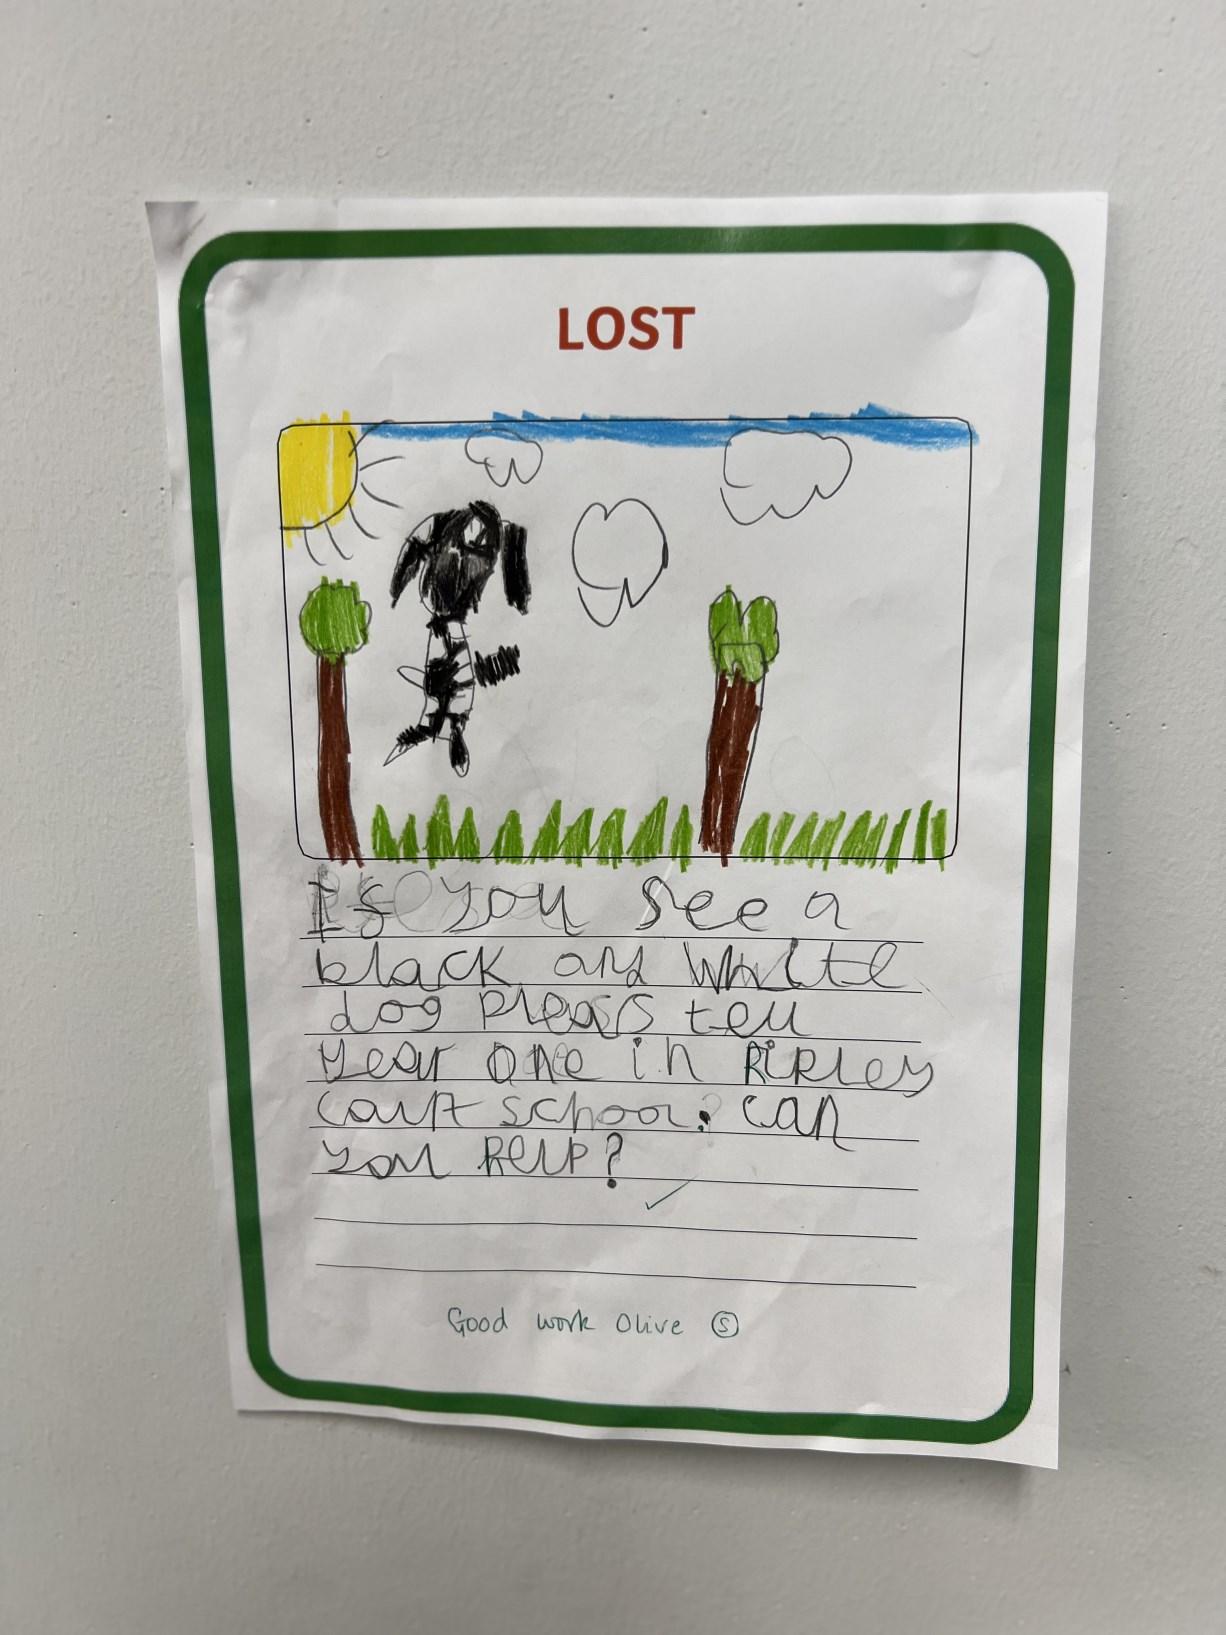 LOST
If you see a
black and white
dog pleas tell
year one in Ripley
Cort school. Can
you help?
Good work Olive S